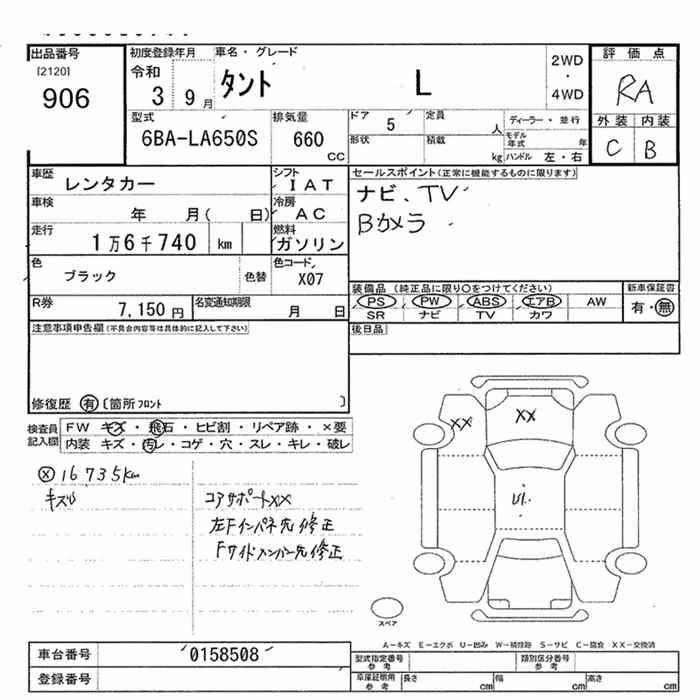 出品番号
[2120]
906
初度登録年月
令和
3 9月
車名・グレード
タント L
2WD
・
4WD
評価点
RA
外装 内装
C B
型式
6BA-LA650S
排気量
660
CC
ドア 5
定員 人
形状
積載 kg
ディーラー・並行
モデル年式 年
ハンドル 左・右
車歴 レンタカー
シフト IAT
車検 年 月( 日)
冷房 AC
走行 1万6千740 km
燃料 ガソリン
色 ブラック 色替
色コード X07
R券 7,150円
名変通知期限 月 日
セールスポイント(正常に機能するものに限ります)
ナビ、TV
Bカメラ
装備品(純正品に限り○をつけてください)
新車保証書
PS PW ABS エアB AW
有・無
SR ナビ TV カワ
後日品
注意事項申告欄(不具合内容等は具体的に記入して下さい)
修復歴 有 〔箇所 フロント 〕
検査員記入欄
FW キズ・飛石・ヒビ割・リペア跡・×要
内装 キズ・汚レ・コゲ・穴・スレ・キレ・破レ
16735km
コアサポートXX
左Fインパネ先修正
XX
XX
U1
スペア
A-キズ E-エクボ U-凹み W-補修跡 S-サビ C-腐食 XX-交換済
車台番号 0158508
登録番号
型式指定番号 参考
類別区分番号 参考
車庫証明用 参考
長さ cm
幅 cm
高さ cm